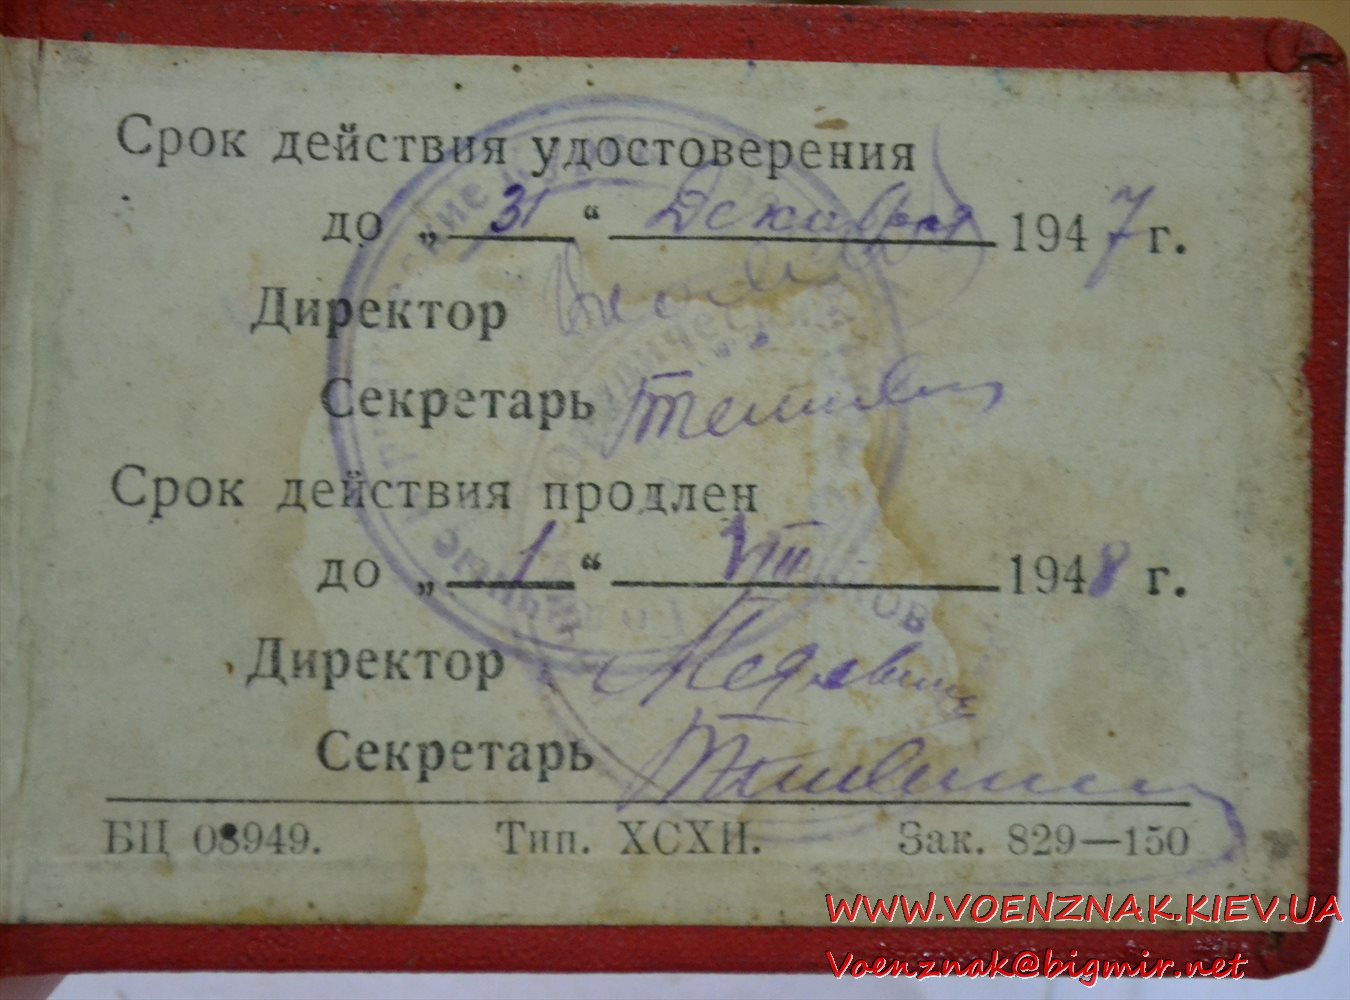 Срок действия удостоверения
до „ 31 “ Декабря 1947 г.
Директор
Секретарь
Срок действия продлен
до „ 1 “ VIII 1948 г.
Директор
Секретарь
БЦ 08949. Тип. ХСХИ. Зак. 829—150
WWW.VOENZNAK.KIEV.UA
Voenznak@bigmir.net